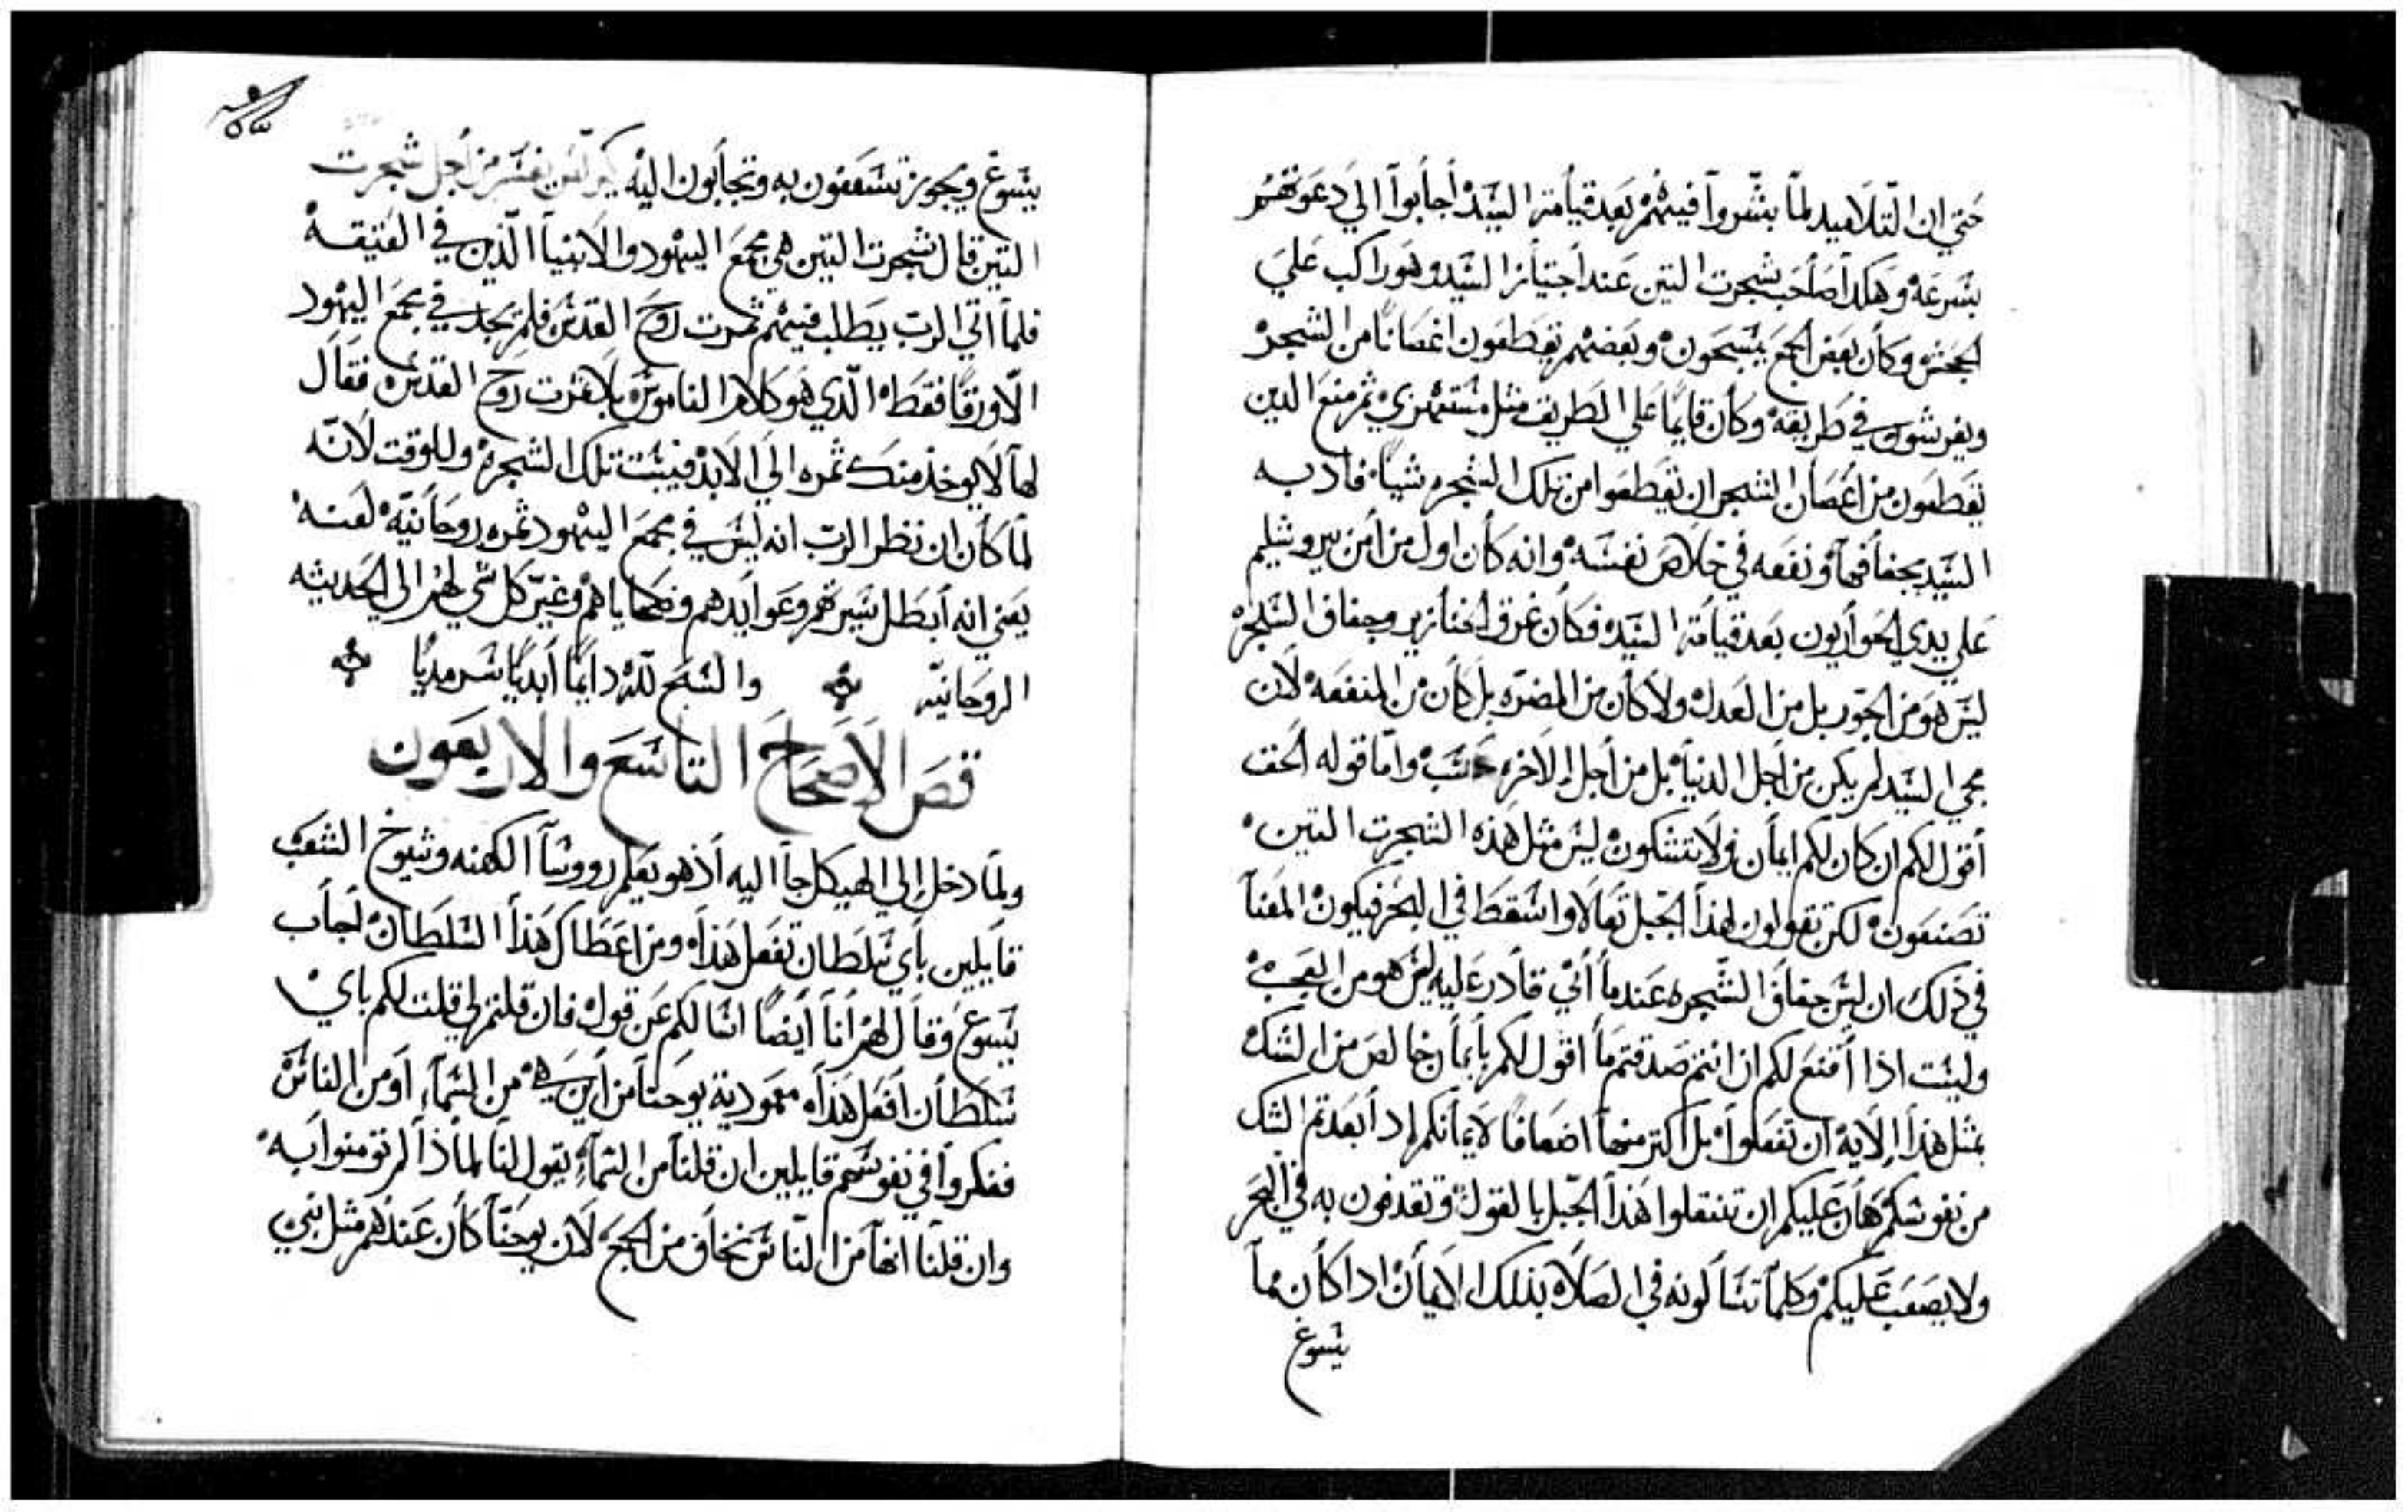 حتي ان التلاميد لما بشروا فيهم بعد قيامة السيد أجابوا الي دعوتهم
بسرعه وهكدا صاحب شجرت التين عند اجتياز السيد وهو راكب علي
الجحش وكان بعض الجمع يسبحون وبعضهم يقطعون اغصانًا من الشجر
ويفرشون في طريقه وكان قايمًا علي الطريق مثل مستهزي ثم منع الدين
يقطعون من أغصان الشجر ان يقطعوا من تلك الشجره شيًا فادبه
السيد بجفافها ونفعه في خلاص نفسه وانه كان اول من أمن بيروشليم
علي يدي الحواريون بعد قيامة السيد فكان غرق الخنازير وجفاف الشجره
ليس هو من الجور بل من العدل ولا كان من المضره بل كان من المنفعه لان
مجي السيد لم يكن من اجل الدنيا بل من أجل الاخره حسب واما قوله الحق
أقول لكم ان كان لكم ايمان ولا تشكون ليس مثل هذه الشجرت التين
تصنعون لكن تقولون لهذا الجبل تعالا واسقط في البحر فيكون المعنا
في ذلك ان ليس جفاف الشجره عندما أني قادر عليه ليس هو من العجب
وليست اذا أقنع لكم ان انتم صدقتم ما اقول لكم بايمان خالص من الشك
بمثل هذا الايه ان تفعلوا بل أكتر منها اضعافًا لايمانكم إد أبعدتم الشك
من نفوسكم هان عليكم ان تنقلوا هذا الجبل بالقول وتقدفون به في البحر
ولا يصعب عليكم وكلما تسالونه في الصلاه بذلك الايمان ادا كان مما
يسوغ
يسوغ ويجوز تسعفون به وتجابون اليه كيرلس يفسر من أجل شجرت
التين قال شجرت التين هي مجمع اليهود والانبيا الذين في العتيقه
فلما اتي الرب يطلب فيهم ثمرت روح القدس فلم يجد في مجمع اليهود
الا ورقًا فقط الذي هو كلام الناموس بلا ثمرت روح القدس فقال
لها لا يوخذ منك ثمره الي الابد فيبست تلك الشجره وللوقت لانه
لما كان ان نظر الرب انه ليس في مجمع اليهود ثمره روحانيه لعنه
يعني انه أبطل سيرتهم وعوايدهم وضحاياهم وغير كل شي لهم الي الحديثه
الروحانيه والسبح لله دايمًا أبديًا سرمديًا
قص الأصحاح التاسع والاربعون
ولما دخل إلي الهيكل جا اليه أذ هو يعلم رووسا الكهنه وشيوخ الشعب
قايلين بأي سلطان تفعل هذا ومن اعطاك هذا السلطان أجاب
يسوع وقال لهم أنا أيضًا اسالكم عن قول فان قلتم لي قلت لكم باي
سلطان أفعل هذا معمودية يوحنا من أين هي من السما او من الناس
ففكروا في نفوسهم قايلين ان قلنا من السما يقول لنا لماذا لم تومنوا به
وان قلنا انها من الناس نخاف من الجمع لان يوحنا كان عندهم مثل نبي